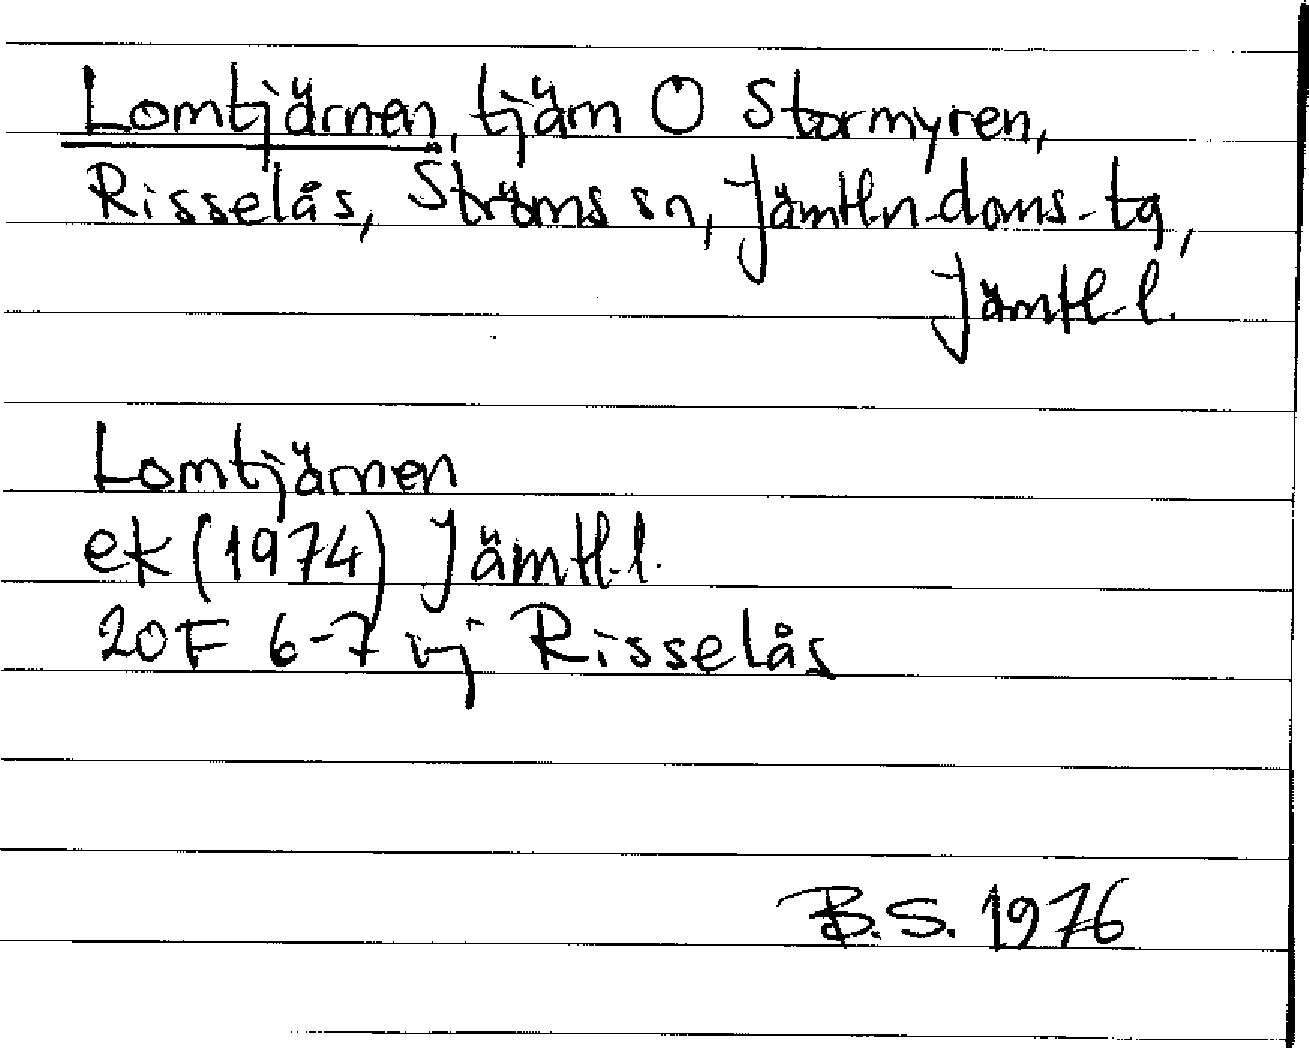 Lomtjärnen, tjärn O Stormyren,
Risselås, Ströms sn, Jämtln-doms-tg,
Jämtl.l.
Lomtjärnen
ek (1974) Jämtl.l.
20F 6-7 ij Risselås
B.S. 1976